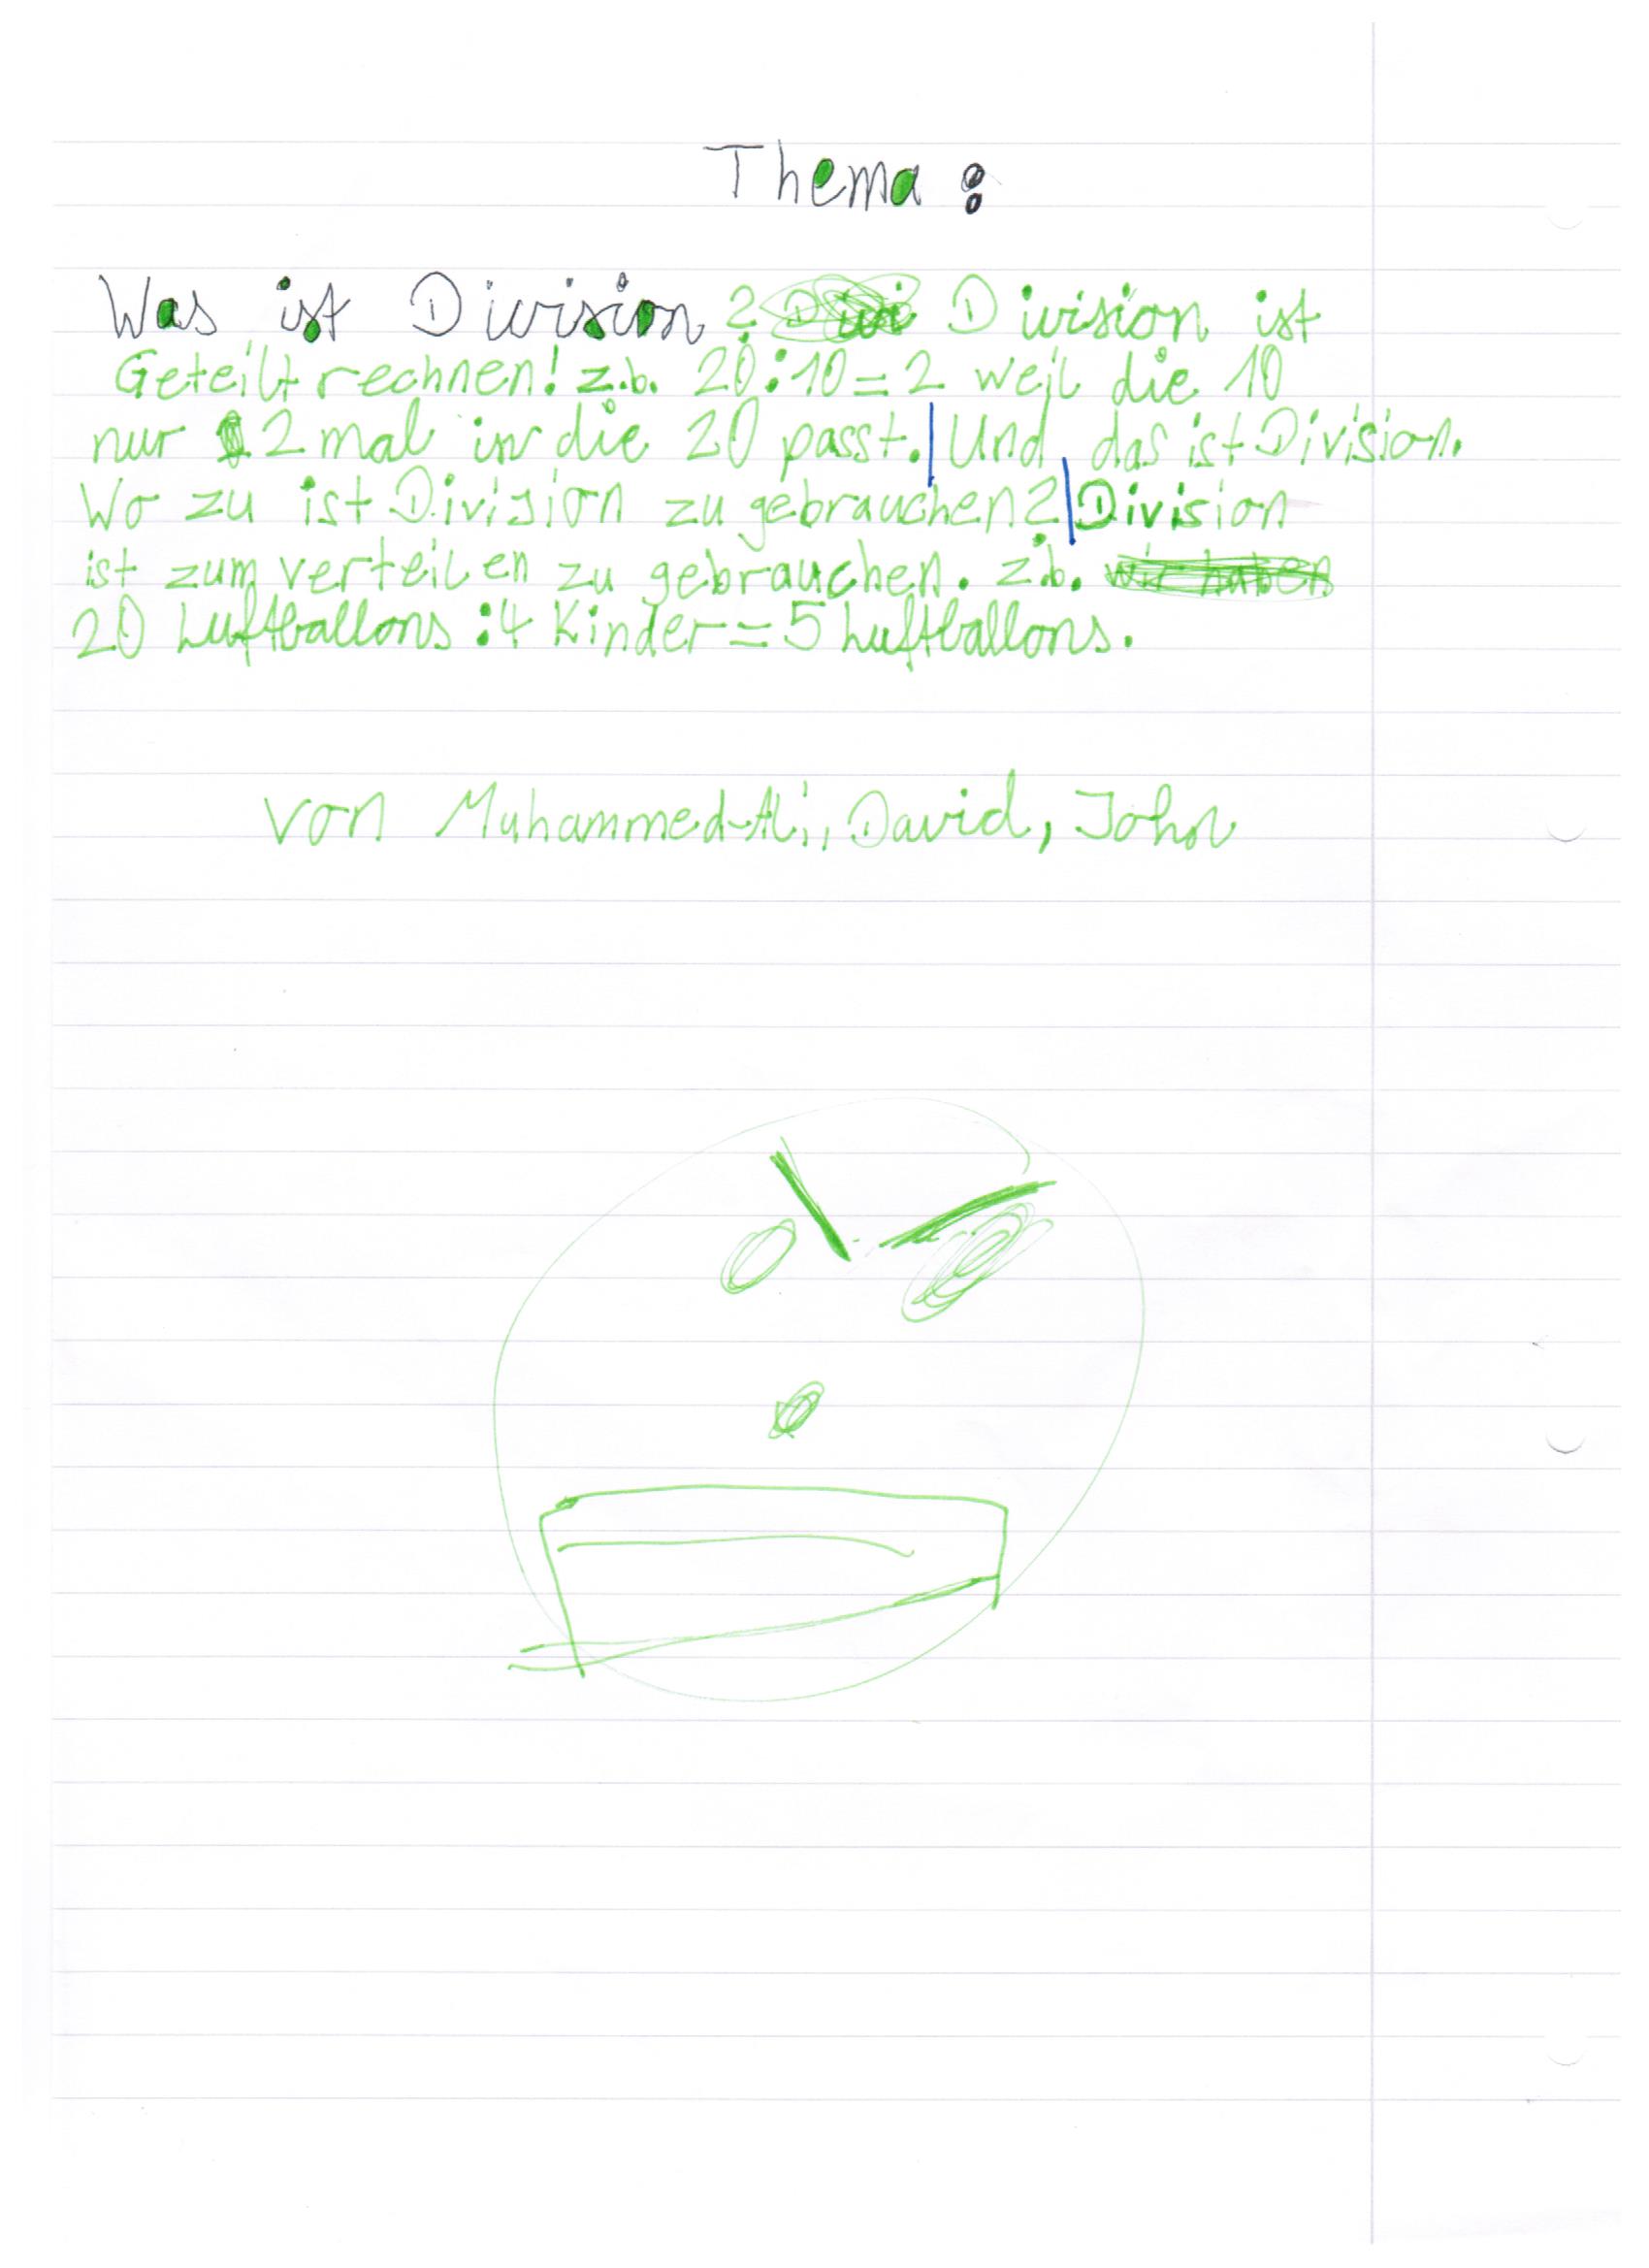 Thema:
Was ist Division? Division ist
Geteilt rechnen! z.b. 20:10=2 weil die 10
nur 2 mal in die 20 passt.| Und das ist Division.
Wo zu ist Division zu gebrauchen?|Division
ist zum verteilen zu gebrauchen. z.b. wir haben
20 Luftballons :4 Kinder=5 Luftballons.
von Muhammed-Ali, David, John